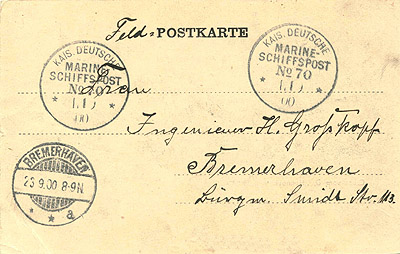 Feld-POSTKARTE
KAIS. DEUTSCHE
MARINE-
SCHIFFSPOST
No 70
KAIS. DEUTSCHE
MARINE-
SCHIFFSPOST
No 70
Frau
Ingenieur H. Großkopf
Bremerhaven
Bürgm. Smidt Str. 113.
BREMERHAVEN
23 9.00 8-9N
* * a